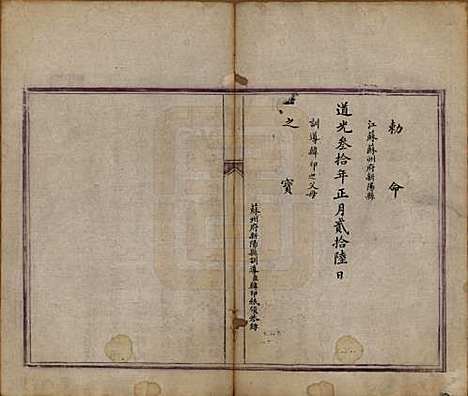 勅命
江蘇蘇州府新陽縣
道光叁拾年正月貳拾陸日
訓導韓印之父母
之寶
蘇州府新陽縣訓導臣韓印祇領恭錄